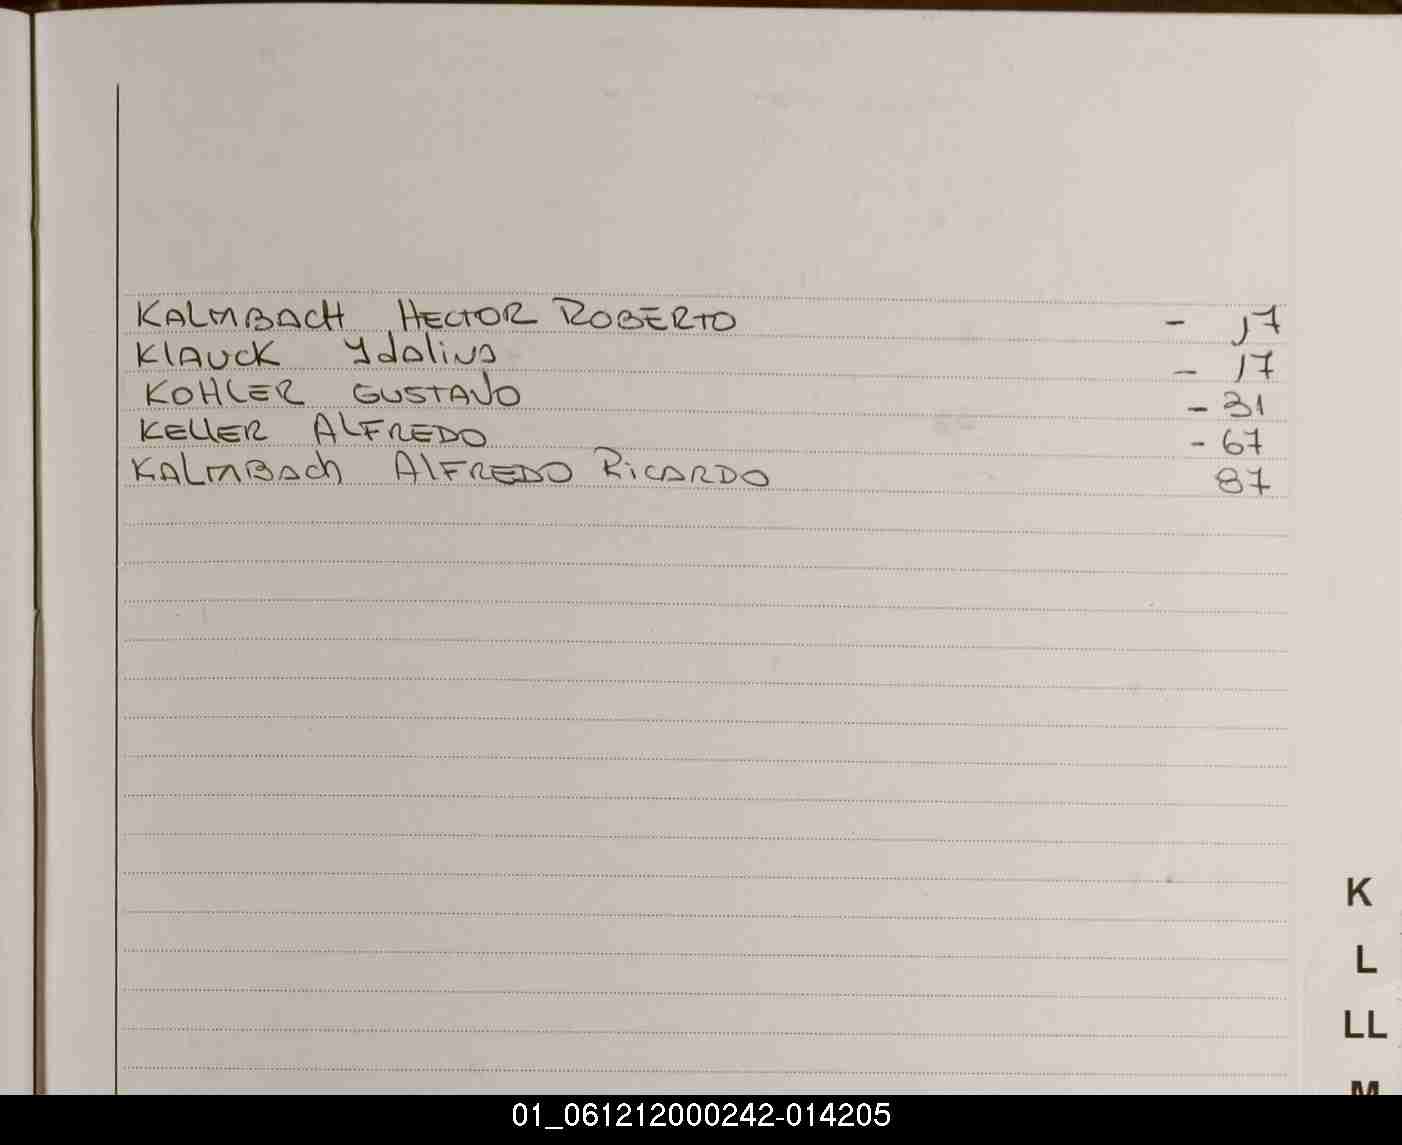 KALMBACH HECTOR ROBERTO - 17
KlAUCK Ydalina - 17
KOHLER GUSTAVO - 31
KELLER ALFREDO - 67
KALMBACh AlFREDO RiCARDO 87
K
L
LL
M
01_061212000242-014205